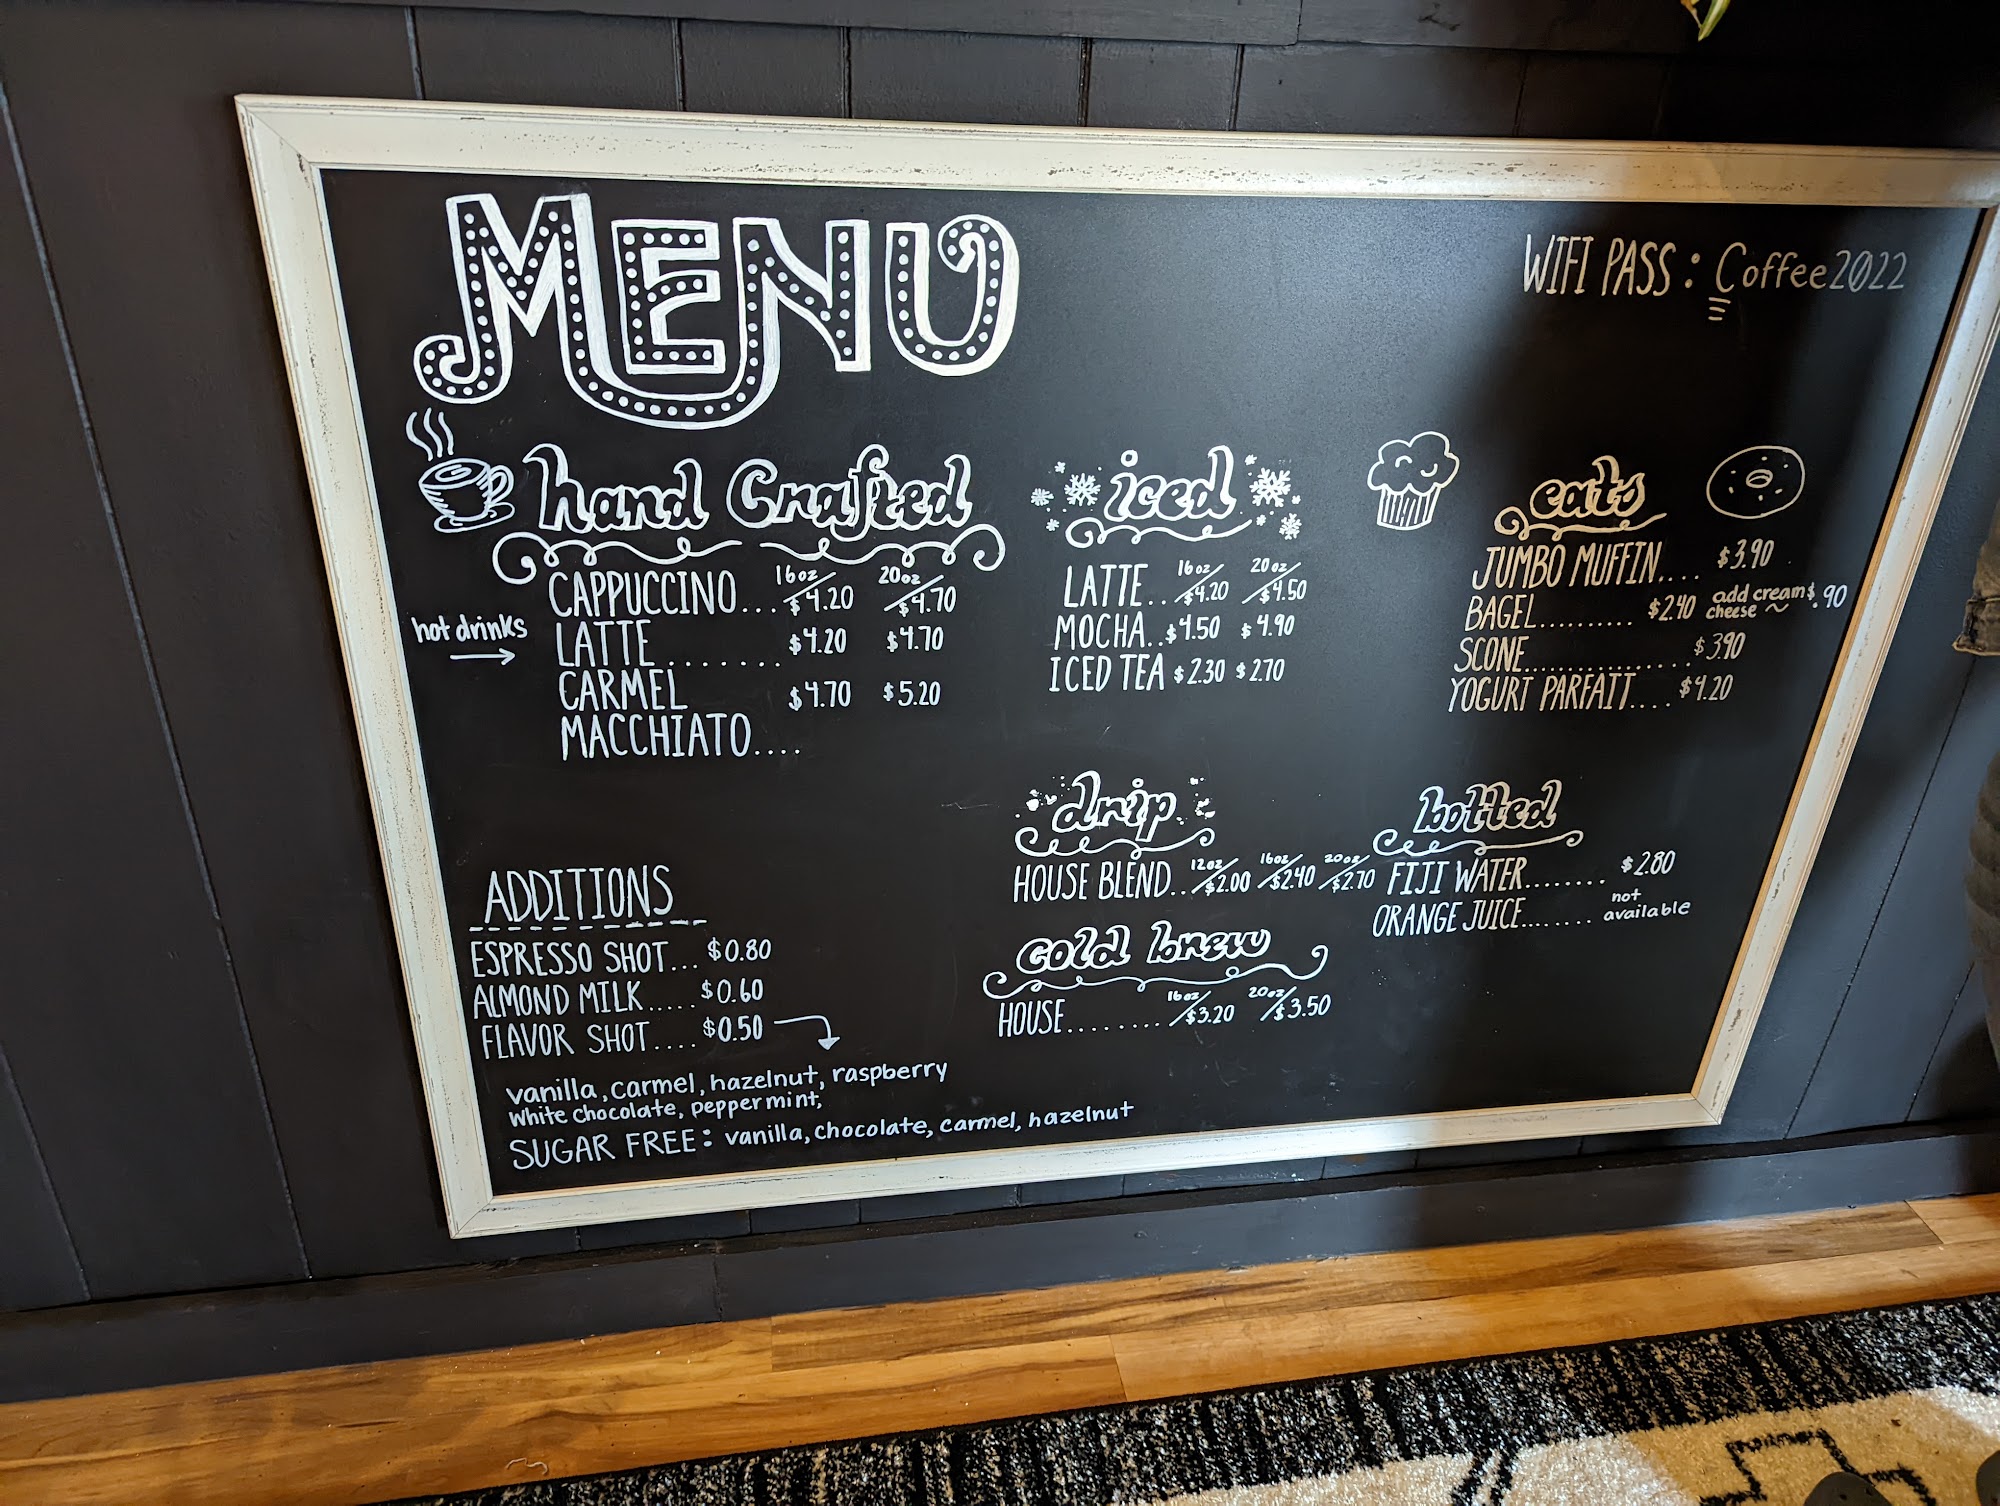 MENU
WIFI PASS : Coffee2022
hand Crafted
hot drinks
CAPPUCCINO... 16oz/$4.20 20oz/$4.70
LATTE........ $4.20 $4.70
CARMEL $4.70 $5.20
MACCHIATO....
iced
LATTE.. 16oz/$4.20 20oz/$4.50
MOCHA.. $4.50 $4.90
ICED TEA $2.30 $2.70
eats
JUMBO MUFFIN.... $3.90
BAGEL.......... $2.40 add cream cheese ~ $.90
SCONE................ $3.90
YOGURT PARFAIT.... $4.20
ADDITIONS
ESPRESSO SHOT... $0.80
ALMOND MILK..... $0.60
FLAVOR SHOT.... $0.50
vanilla, carmel, hazelnut, raspberry
white chocolate, peppermint,
SUGAR FREE: vanilla, chocolate, carmel, hazelnut
drip
HOUSE BLEND.. 12oz/$2.00 16oz/$2.40 20oz/$2.70
cold brew
HOUSE......... 16oz/$3.20 20oz/$3.50
bottled
FIJI WATER........ $2.80
ORANGE JUICE....... not available